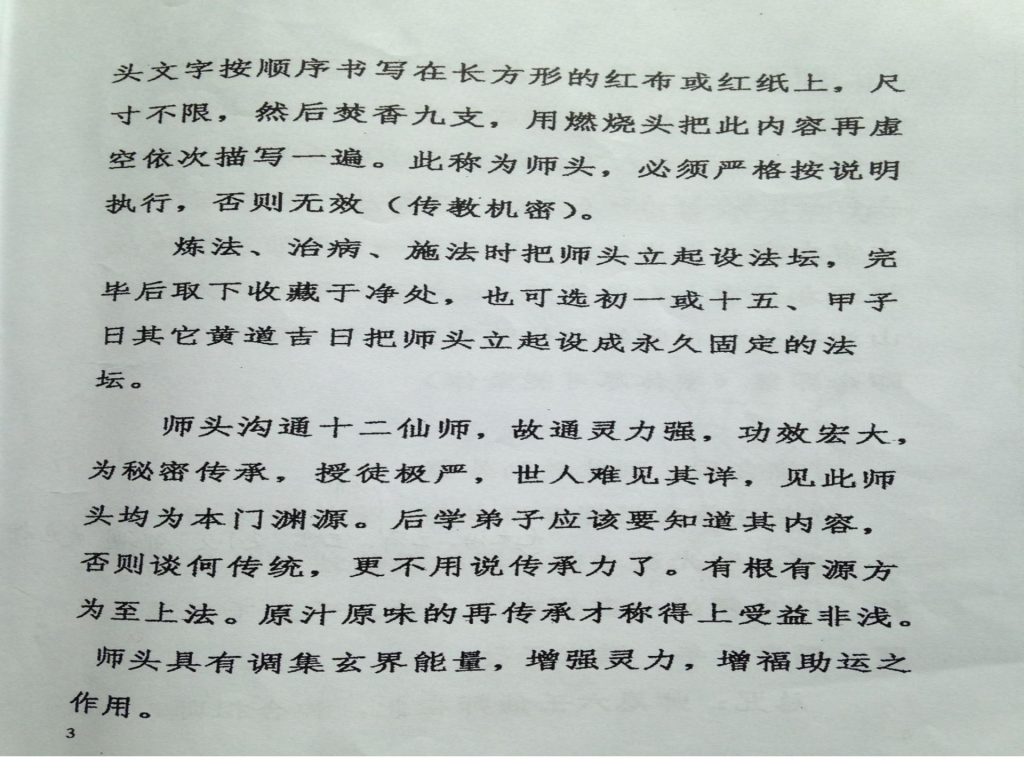 头文字按顺序书写在长方形的红布或红纸上，尺
寸不限，然后焚香九支，用燃烧头把此内容再虚
空依次描写一遍。此称为师头，必须严格按说明
执行，否则无效（传教机密）。
炼法、治病、施法时把师头立起设法坛，完
毕后取下收藏于净处，也可选初一或十五、甲子
日其它黄道吉日把师头立起设成永久固定的法
坛。
师头沟通十二仙师，故通灵力强，功效宏大，
为秘密传承，授徒极严，世人难见其详，见此师
头均为本门渊源。后学弟子应该要知道其内容，
否则谈何传统，更不用说传承力了。有根有源方
为至上法。原汁原味的再传承才称得上受益非浅。
师头具有调集玄界能量，增强灵力，增福助运之
作用。
3